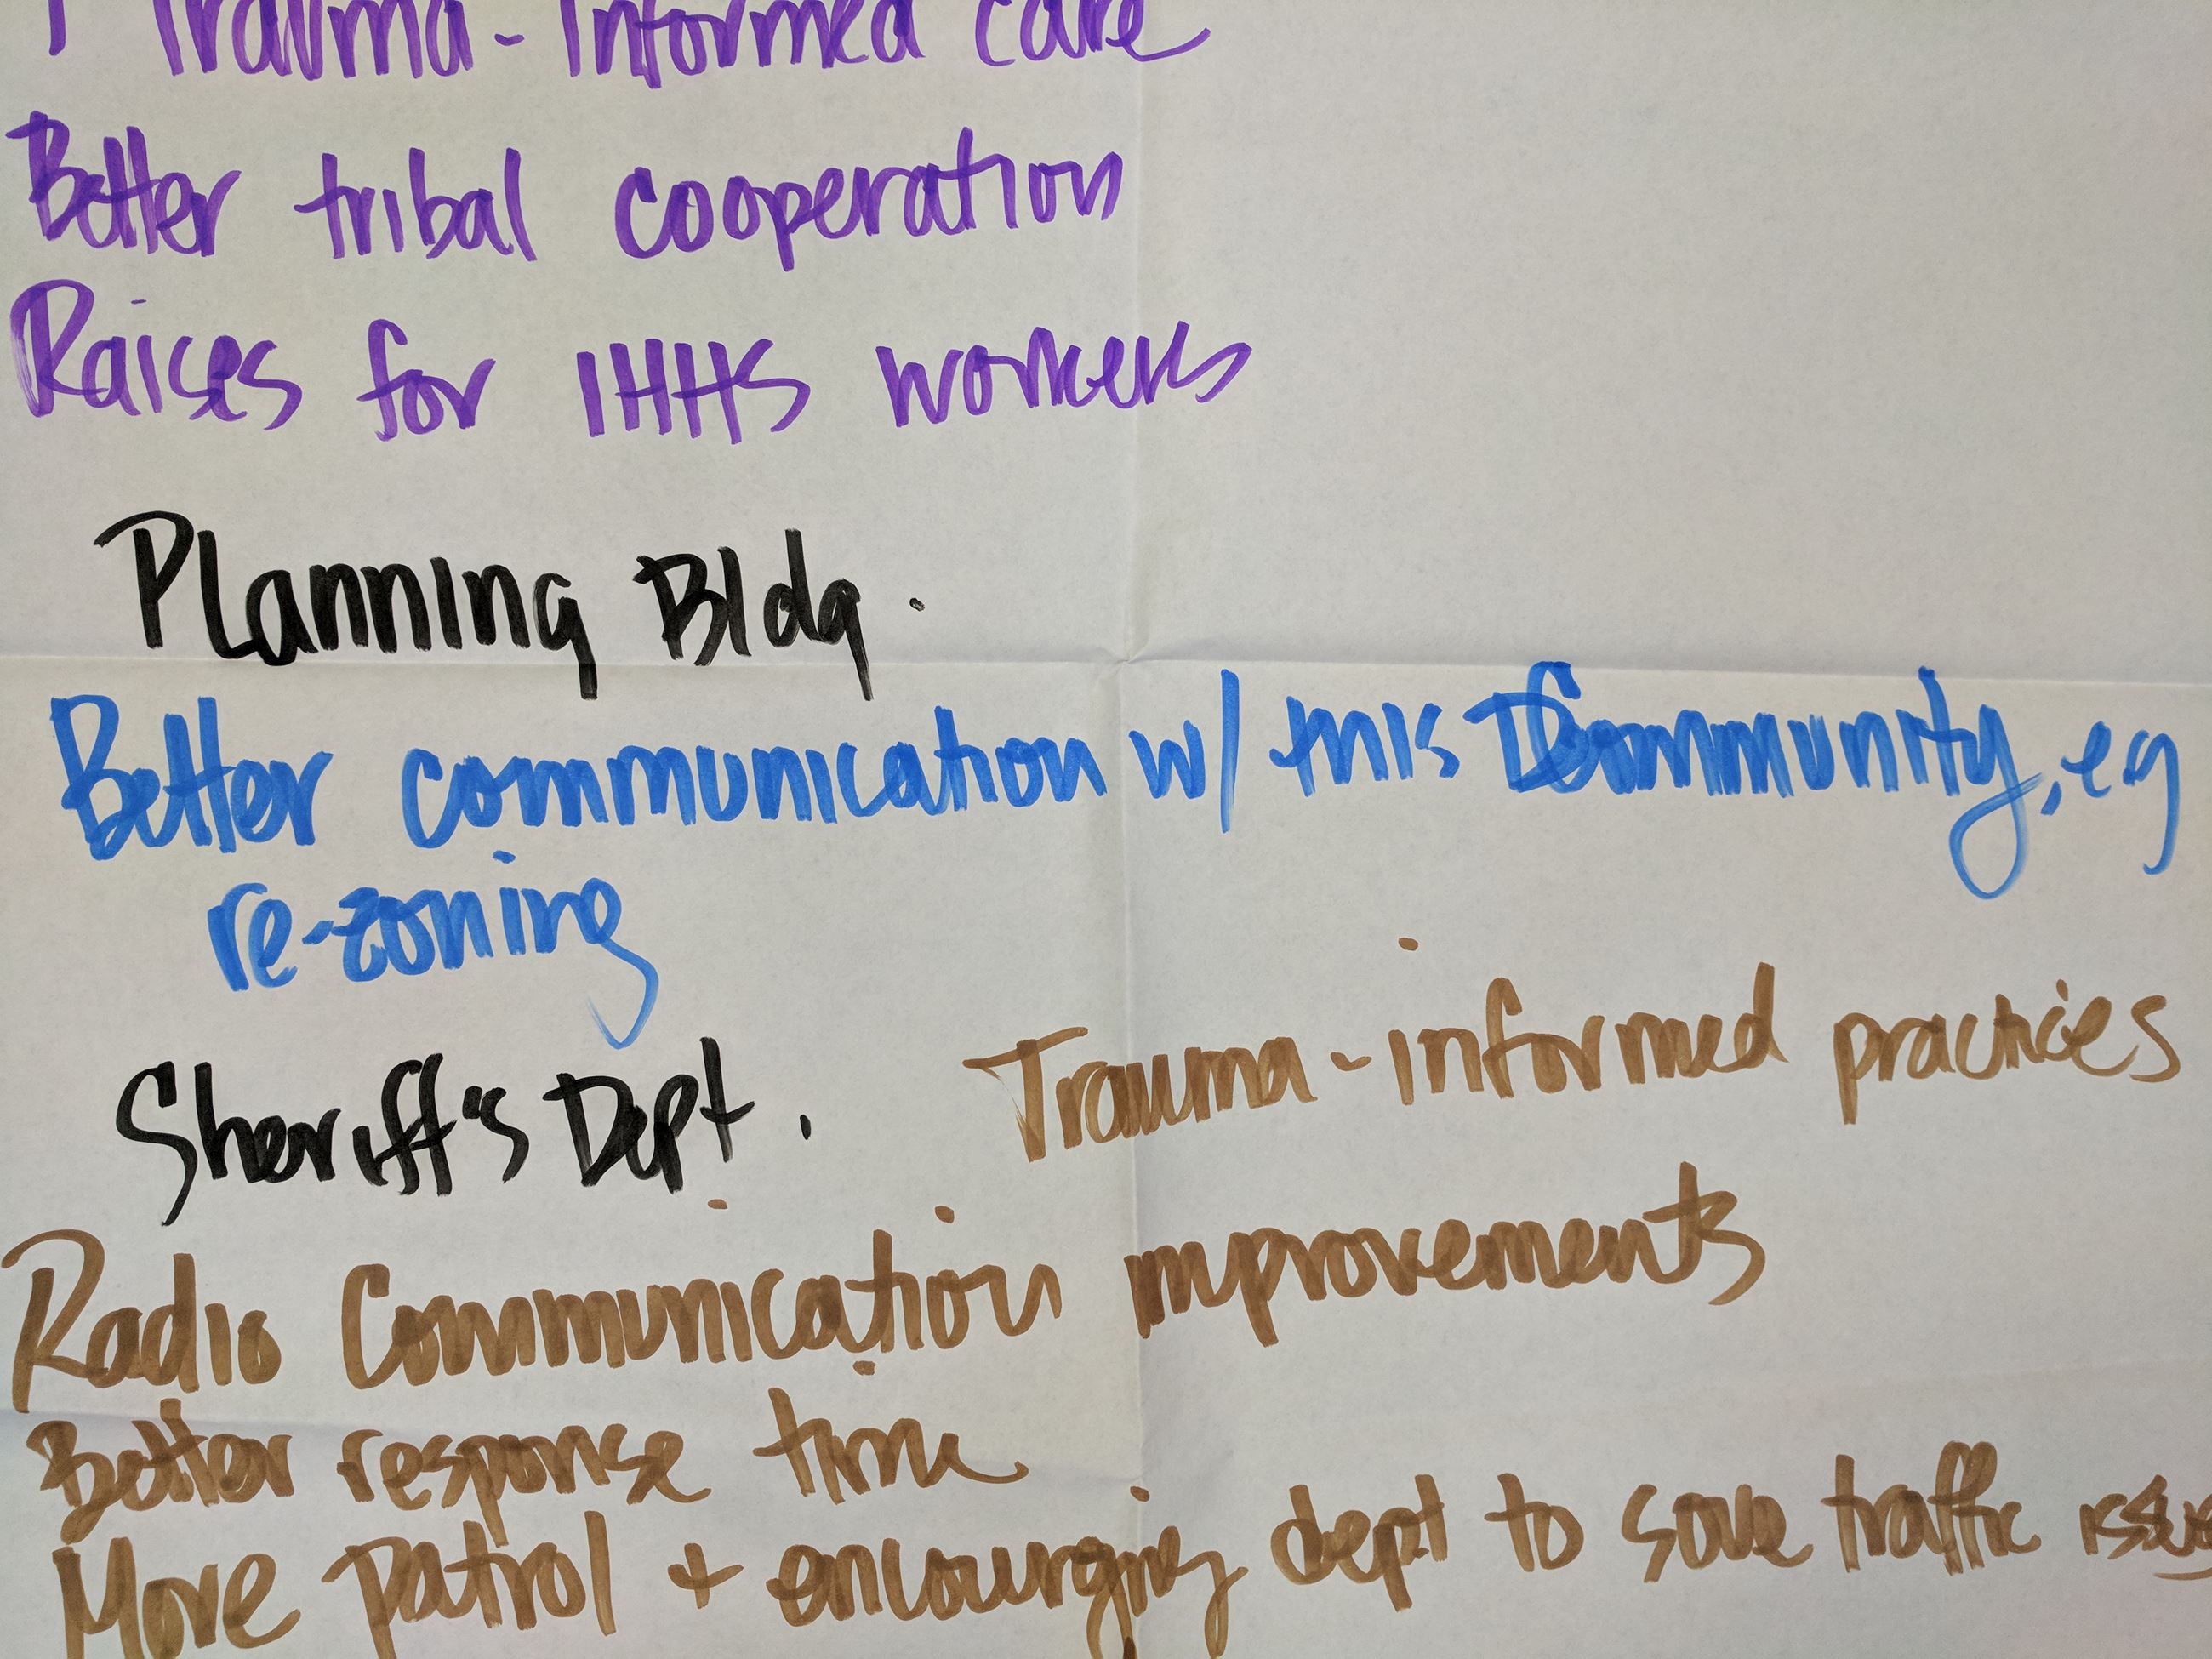 Trauma-Informed care
Better tribal cooperation
Raises for IHHS workers
Planning Bldg.
Better communication w/ this Community, eg
re-zoning
Sheriff's Dept. Trauma-informed practices
Radio Communication improvements
Better response time
More patrol + encourging dept to solve traffic